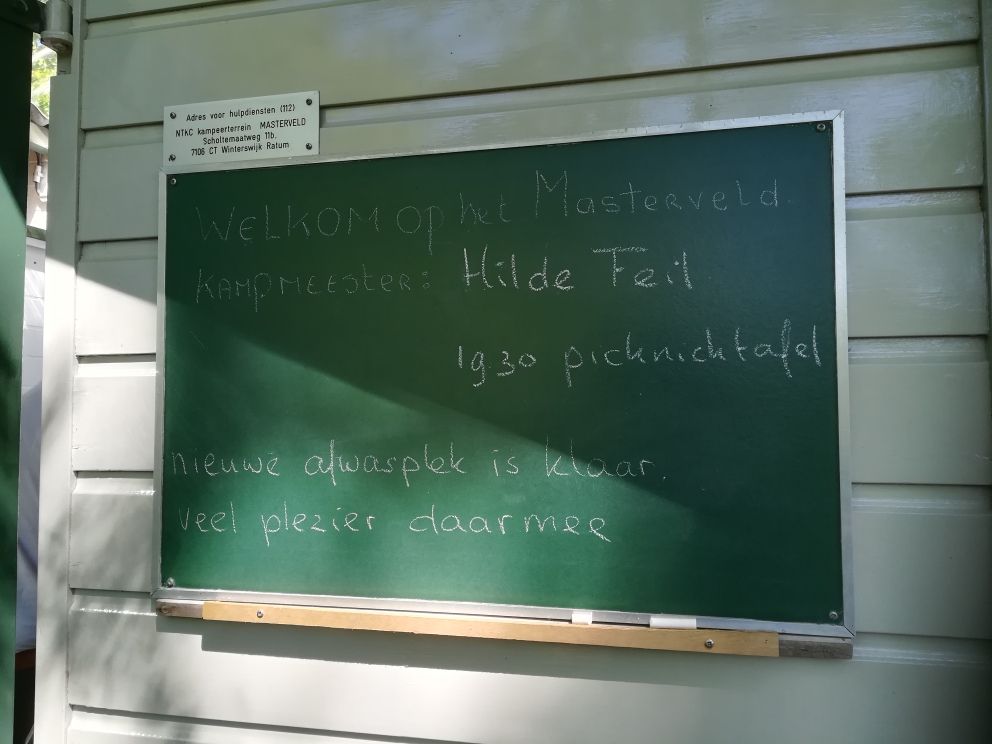 Adres voor hulpdiensten (112)
NTKC kampeerterrein MASTERVELD
Scholtemaatweg 11b,
7106 CT Winterswijk Ratum
WELKOM op het Masterveld.
KAMPMEESTER: Hilde Feil
19.30 picknicktafel
nieuwe afwasplek is klaar.
veel plezier daarmee